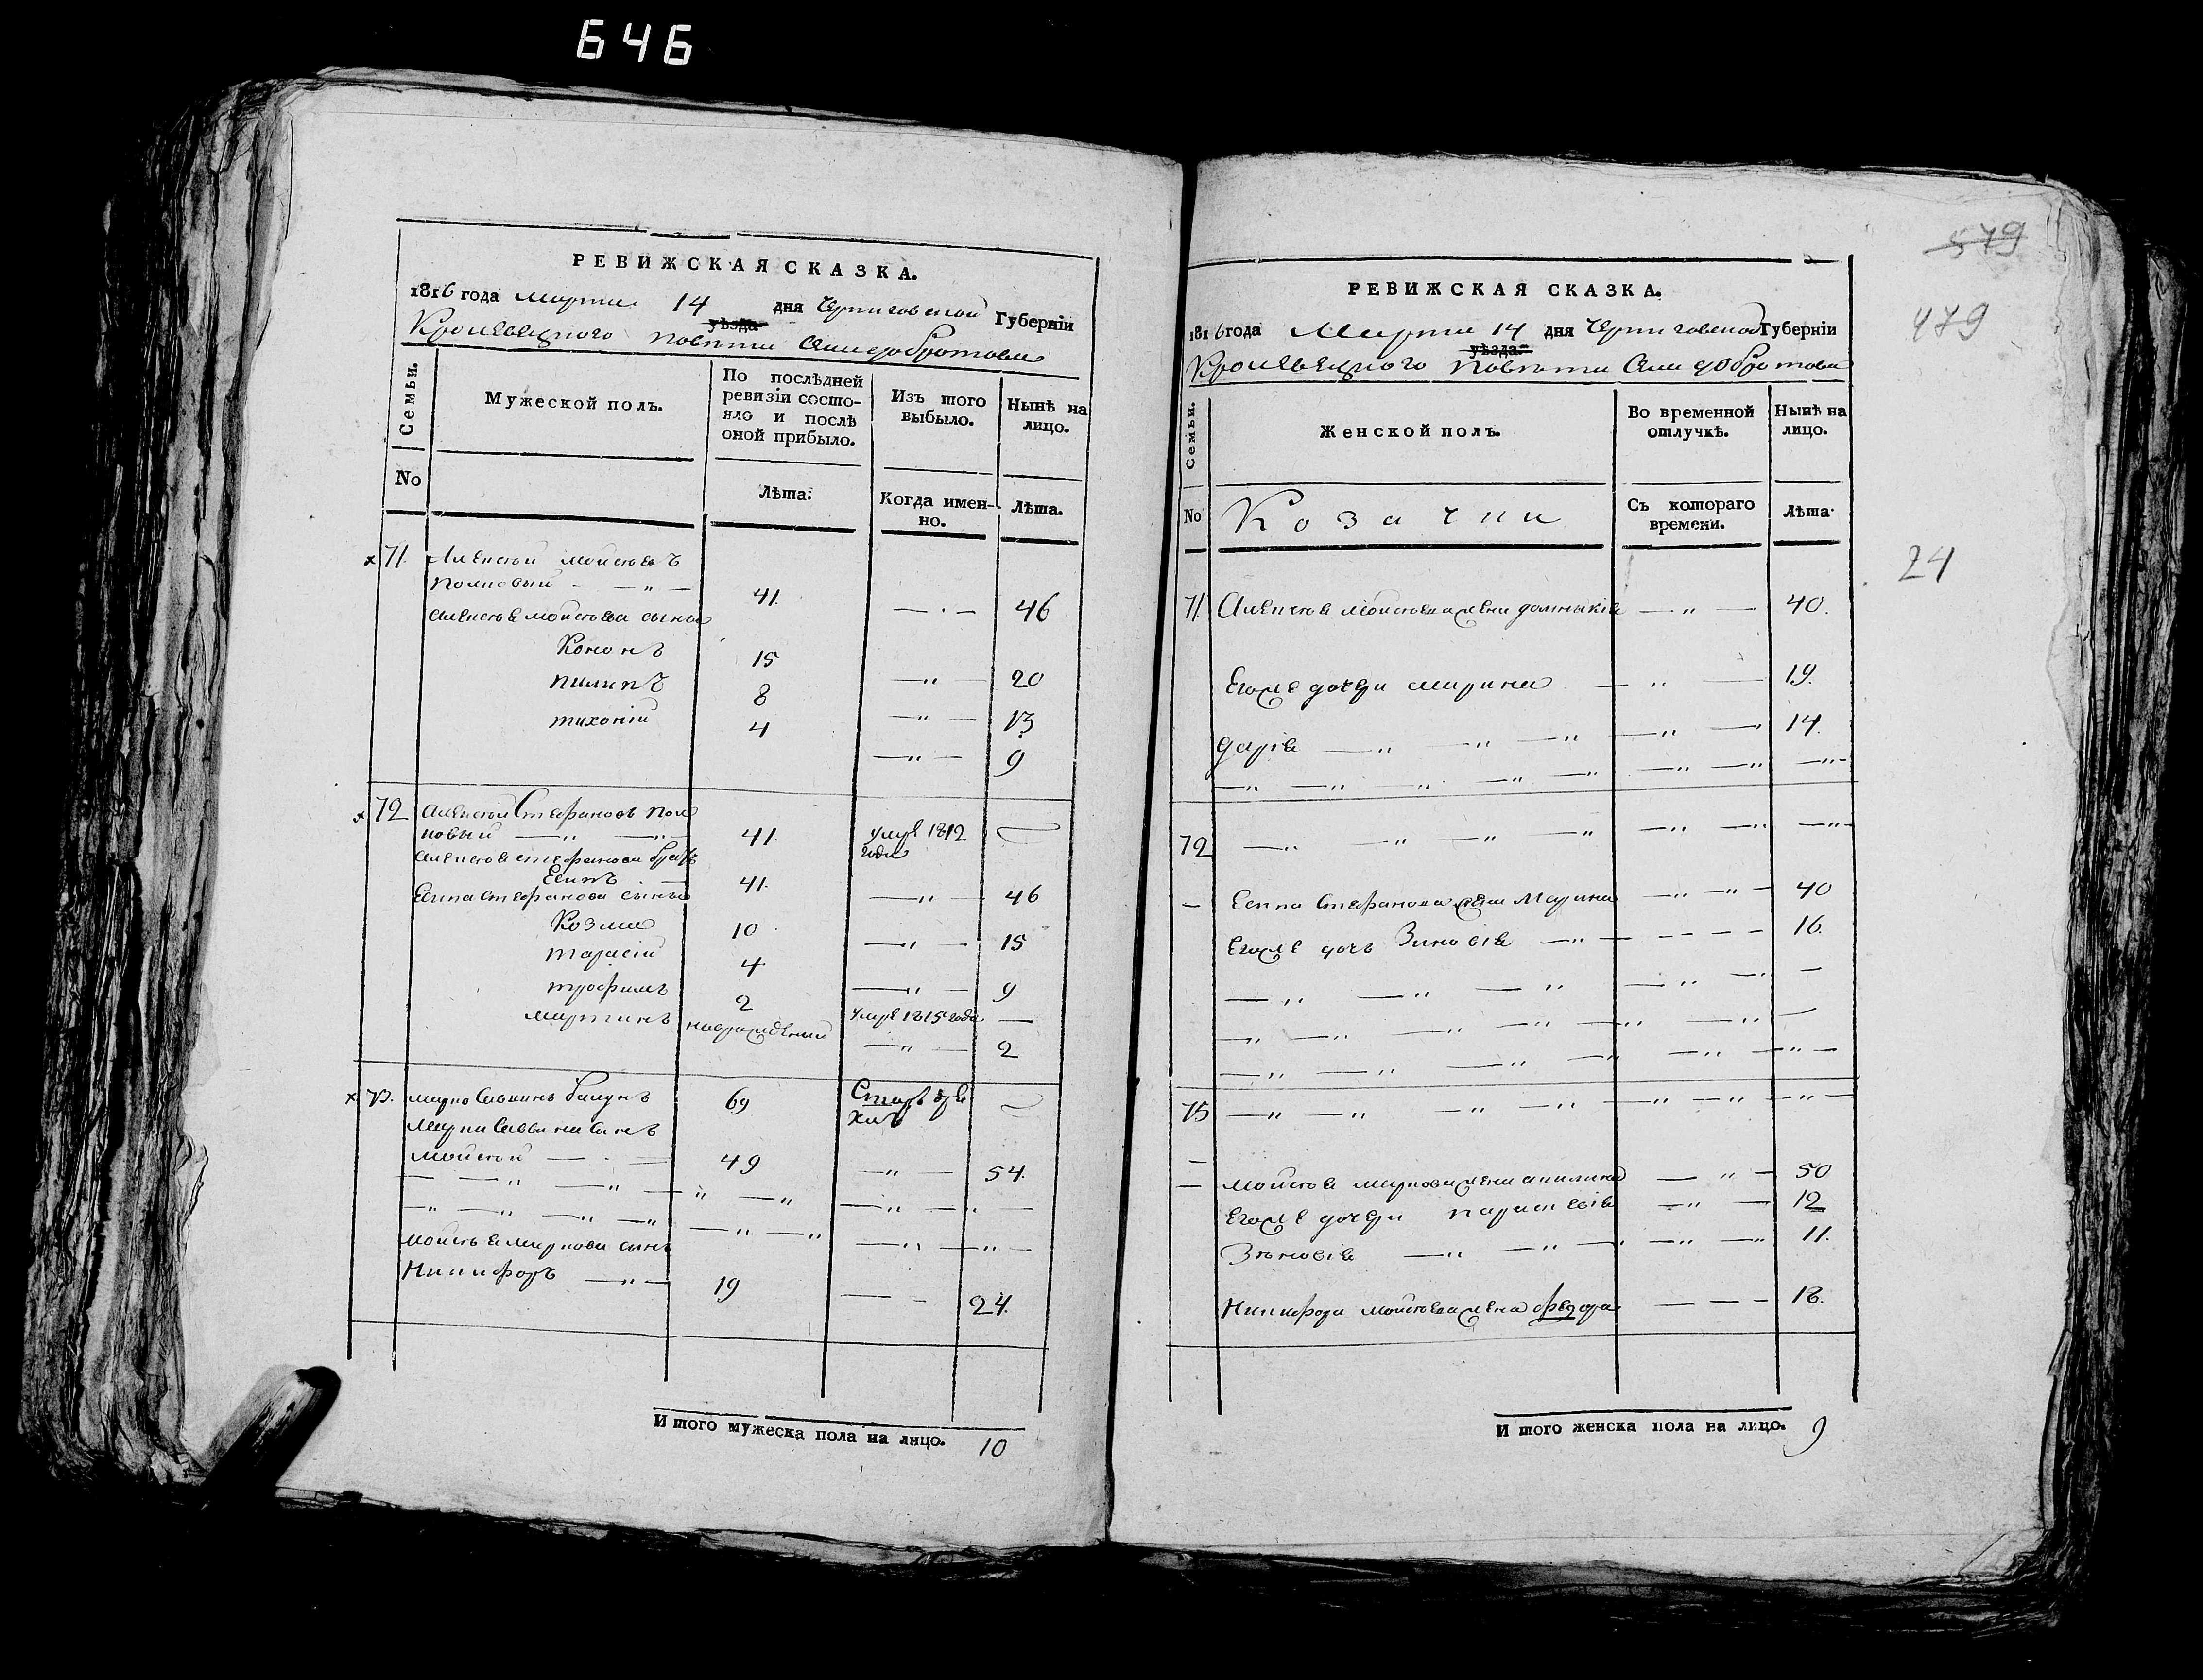 646
РЕВИЖСКАЯ СКАЗКА.
1816 года марта 14 дня Черниговской Губерніи
уѣзда
Кролевецкого повѣта села добротова
Семьи.
Мужеской полъ.
По послѣдней ревизіи состояло и послѣ оной прибыло.
Изъ того выбыло.
Нынѣ на лицо.
No
Лѣта.
Когда именно.
Лѣта.
71. Алексѣй мойсѣевъ
41. 46
алексѣя мойсѣева сыны
Кононъ 15 20
пилипъ 8 13
тихоній 4 9
72 алексѣй Стефановъ
41. умре 1812 года
алексѣя стефанова братъ
Есипъ 41. 46
Есипа стефанова сыны
Козма 10 15
тарасій 4 9
трофимъ 2 умре 1815 года
мартинъ новорожденный 2
73. марко Саввинъ 69
марка Саввина сынъ
мойсѣй 49 54.
мойсѣя маркова сынъ
Никифоръ 19 24.
И того мужеска пола на лицо. 10
579
479
24
РЕВИЖСКАЯ СКАЗКА.
1816 года Марта 14 дня Черниговской Губерніи
уѣзда
Кролевецкого повѣта села добротова
Семьи.
Женской полъ.
Во временной отлучкѣ.
Нынѣ на лицо.
No
Козачки
Съ котораго времени.
Лѣта.
71. Алексѣя мойсѣева жена домникія 40.
Егоже дочери марина 19.
дарія 14.
72
Есипа стефанова жена Марина 40
Егоже дочь Зиновія 16.
73
мойсѣя маркова жена акилина 50
Егоже дочери параскевія 12
Зѣновія 11.
Никифора мойсѣева жена федора 18.
И того женска пола на лицо. 9